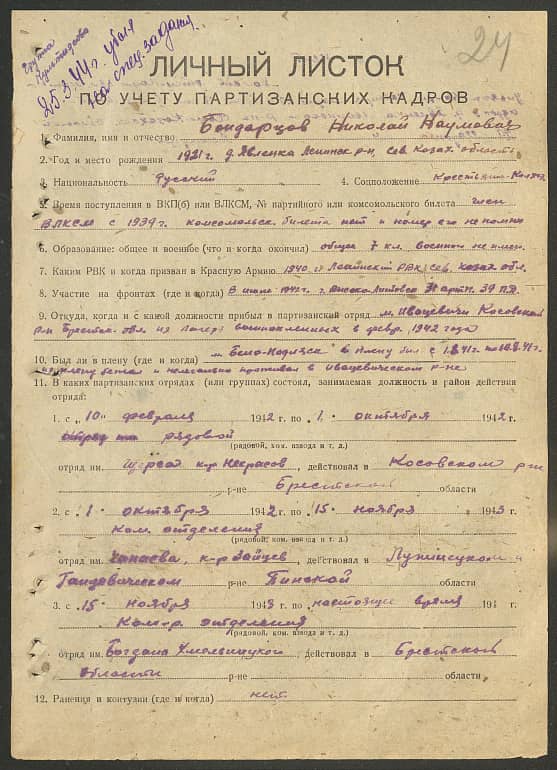 25.3.44 г. убыл
на спец. задание
24
ЛИЧНЫЙ ЛИСТОК
ПО УЧЕТУ ПАРТИЗАНСКИХ КАДРОВ
1. Фамилия, имя и отчество Бондарцов Николай Наумовач
2. Год и место рождения 1921 г. д. Явленка Ленинск р-н, сев. Козах. область
3. Национальность Русский 4. Соцположение Крестьянин-Колхоз
5. Время поступления в ВКП(б) или ВЛКСМ, № партийного или комсомольского билета член
ВЛКСМ с 1939 г. комсомольск. билета нет и номер его не помню
6. Образование: общее и военное (что и когда окончил) общее 7 кл. военного не имеи.
7. Каким РВК и когда призван в Красную Армию 1940 г. Ленинский РВК, сев. козах обл.
8. Участие на фронтах (где и когда) В июне 1941 г. г. Высоко-Литовск арт.п. 39 П.Д.
9. Откуда, когда и с какой должности прибыл в партизанский отряд м. Ивацевичи Косовский
р-н Брестск. обл. из лагеря военнопленных в февр. 1942 года
10. Был ли в плену (где и когда) м. в плену был с 1.8.41 г. по
из плену бежал и нелегально проживал в Ивацевическом р-не
11. В каких партизанских отрядах (или группах) состоял, занимаемая должность и район действия
отряда:
1. с „10" февраля 1942 г. по „1. октября 1942 г.
рядовой
(рядовой, ком. взвода и т. д.)
отряд им. Щорса к-р Некрасов, действовал в Косовском р-н
Брестской
р-не области
2. с „1. октября 1942 г. по „15. ноября 1943 г.
Ком. отделения
(рядовой, ком. взвода и т. д.)
отряд им. Чапаева, к-р Зайцев, действовал в
Ганцевическом р-не Пинской области
3. с „15. ноября 1943 г. по настоящее время 194 г.
Комр. отделения
(рядовой, ком. взвода и т. д.)
отряд им. Богдана Хмельницкого действовал в Брестской
области р-не области
12. Ранения и контузии (где и когда) нет